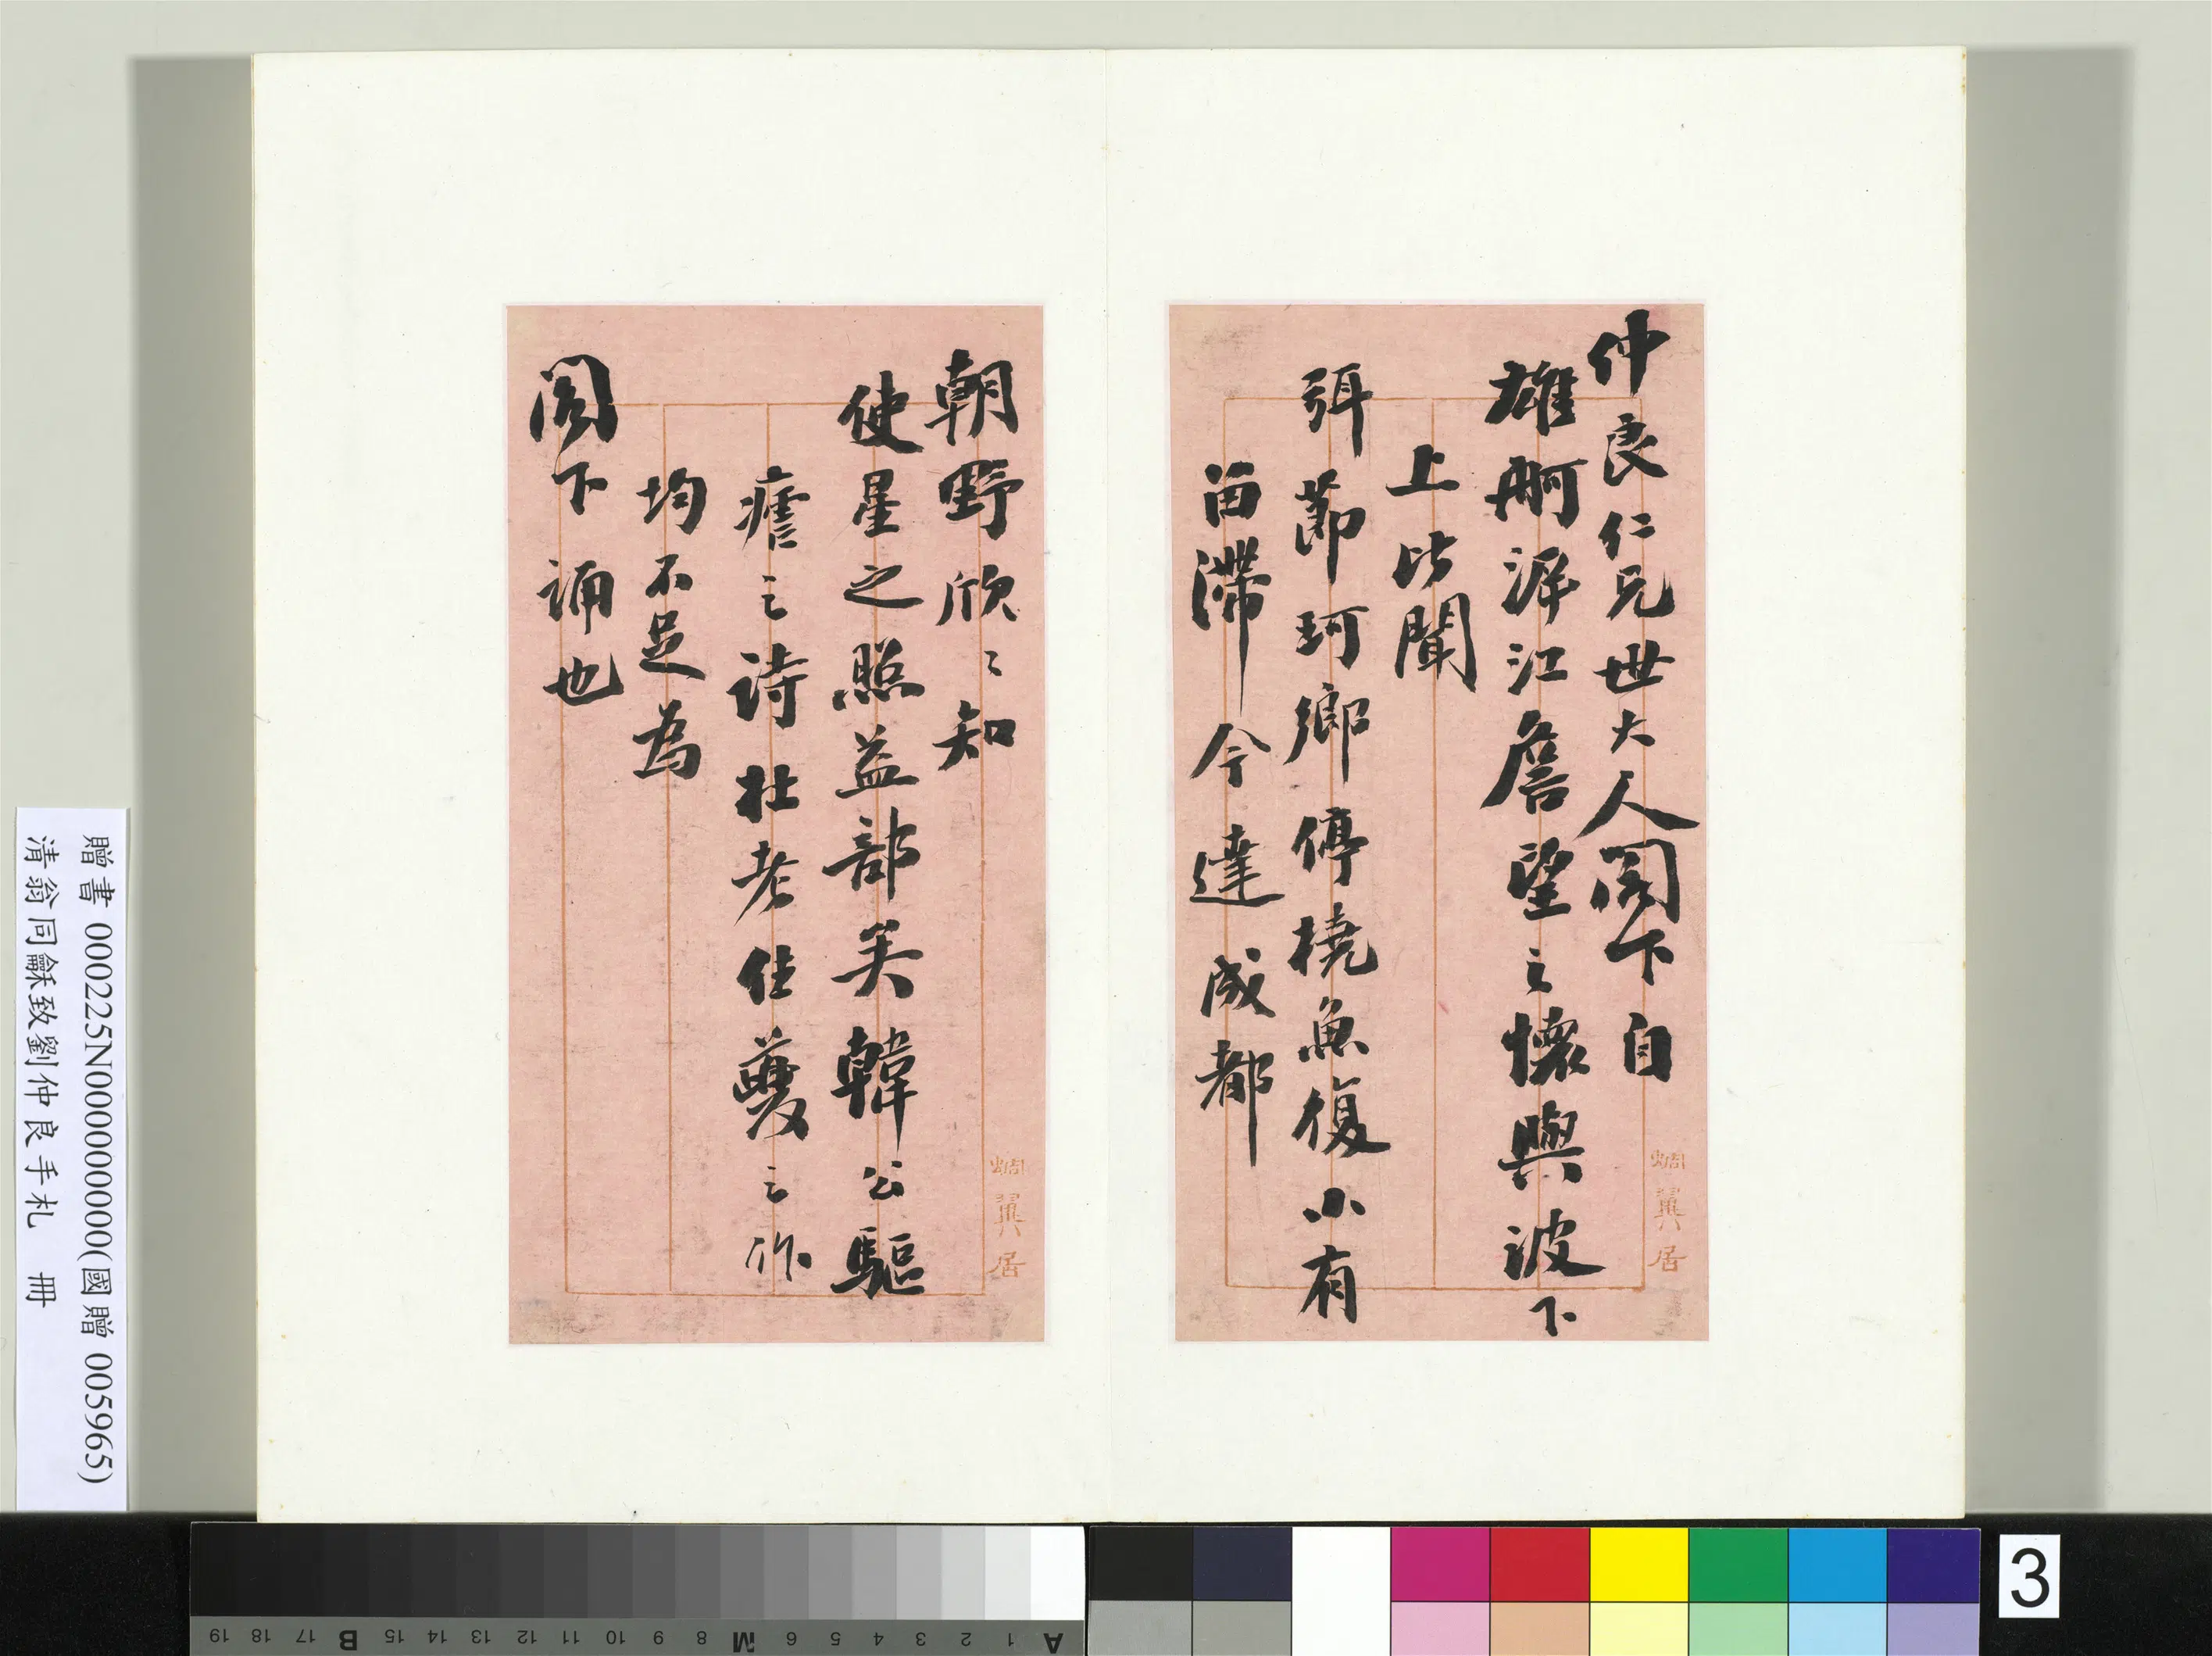 仲良仁兄世大人閣下自
雄舸泝江詹望之懷與波下
上比聞
弭節珂鄉停橈魚復小有
畱滯今達成都
朝野欣〻知
使星之照益部美韓公驅
瘧之詩杜老住夔之作
均不足為
閣下誦也
蜩翼居
蜩翼居
贈書 000225N000000000(國贈 005965)
清翁同龢致劉仲良手札 冊
A 1 2 3 4 5 6 M 8 9 10 11 12 13 14 15 B 17 18 19
3